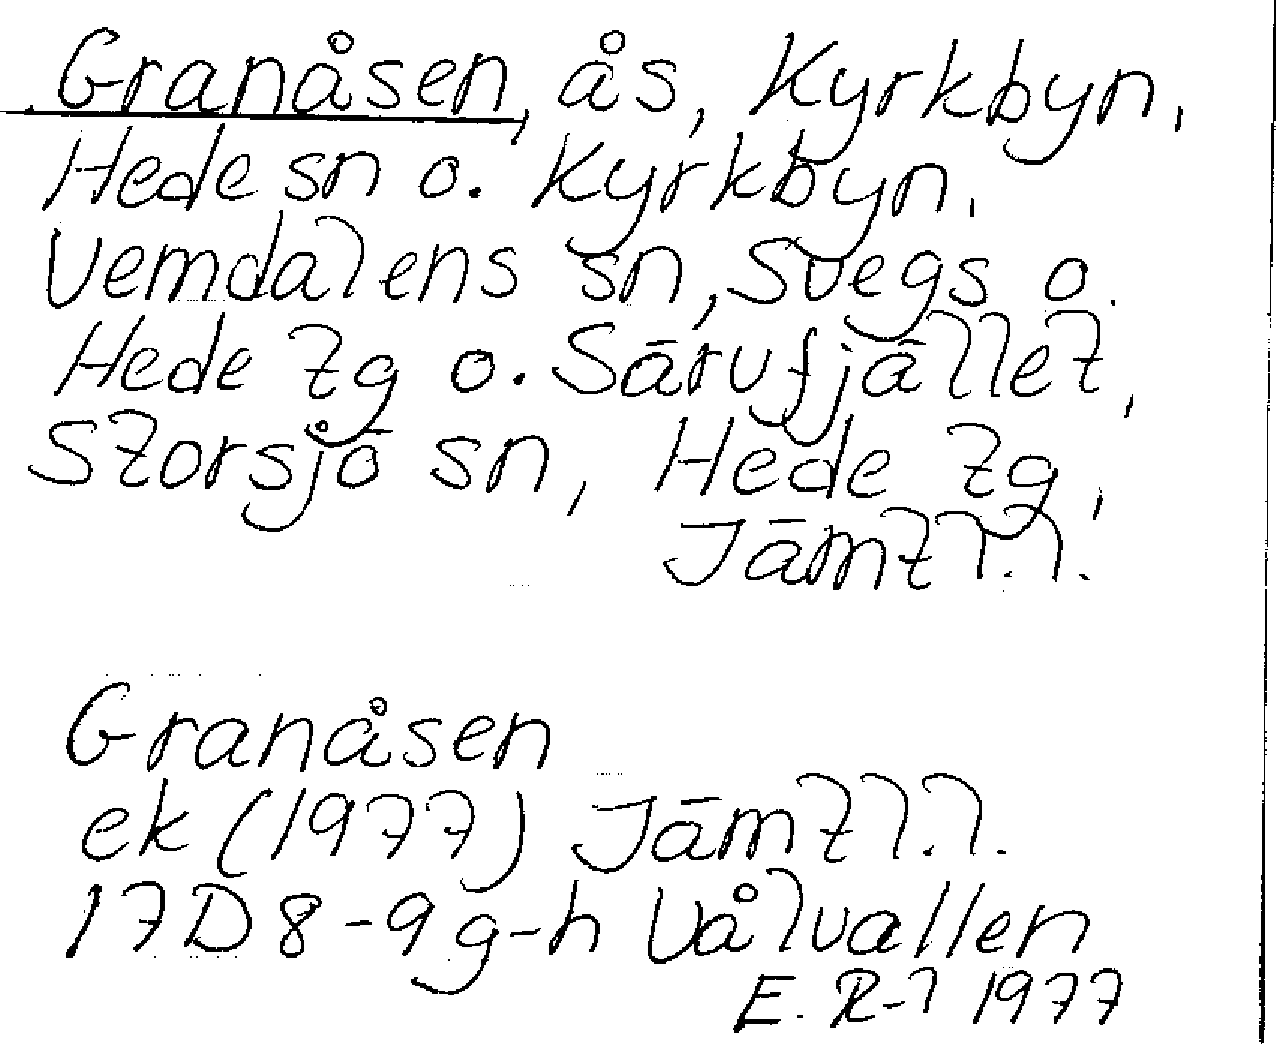 Granåsen, ås, Kyrkbyn,
Hede sn o. Kyrkbyn,
Vemdalens sn, Svegs o.
Hede tg o. Särvfjället,
Storsjö sn, Hede tg,
Jämtl.l.
Granåsen
ek (1977) Jämtl.l.
17D 8-9 g-h Vålvallen
E. R-l 1977